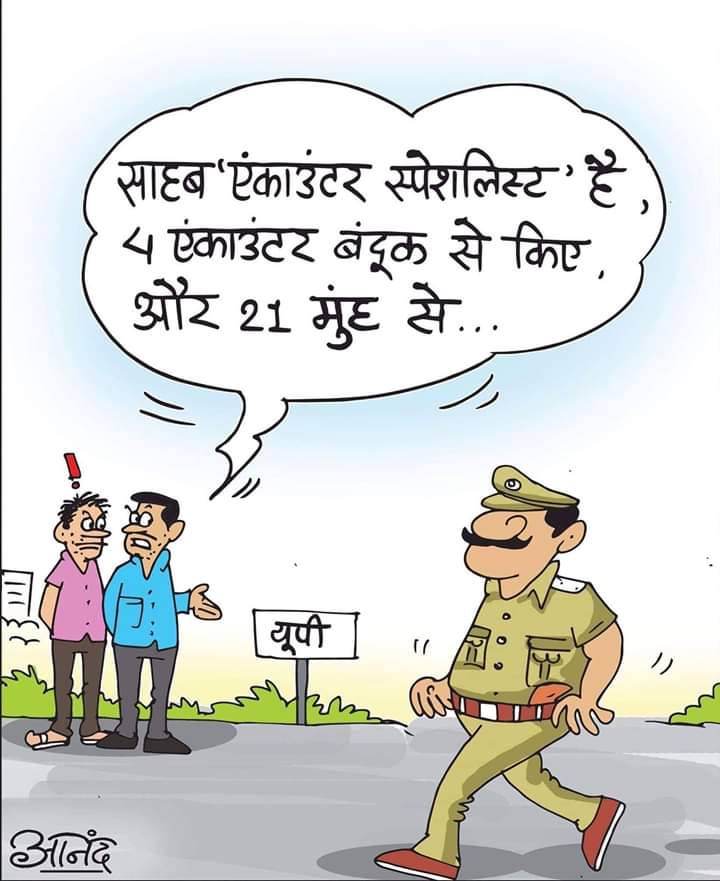 साहब 'एंकाउंटर स्पेशलिस्ट' है,
4 एंकाउंटर बंदूक से किए,
और 21 मुंह से...
!
यूपी
आनंद